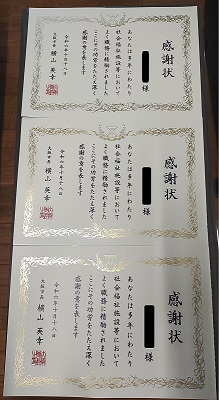 感謝状
様
あなたは多年にわたり
社会福祉施設等において
よく職務に精励されました
ここにその功労をたたえ深く
感謝の意を表します
令和六年十月十八日
大阪市長 横山英幸
感謝状
様
あなたは多年にわたり
社会福祉施設等において
よく職務に精励されました
ここにその功労をたたえ深く
感謝の意を表します
令和六年十月十八日
大阪市長 横山英幸
感謝状
様
あなたは多年にわたり
社会福祉施設等において
よく職務に精励されました
ここにその功労をたたえ深く
感謝の意を表します
令和六年十月十八日
大阪市長 横山英幸